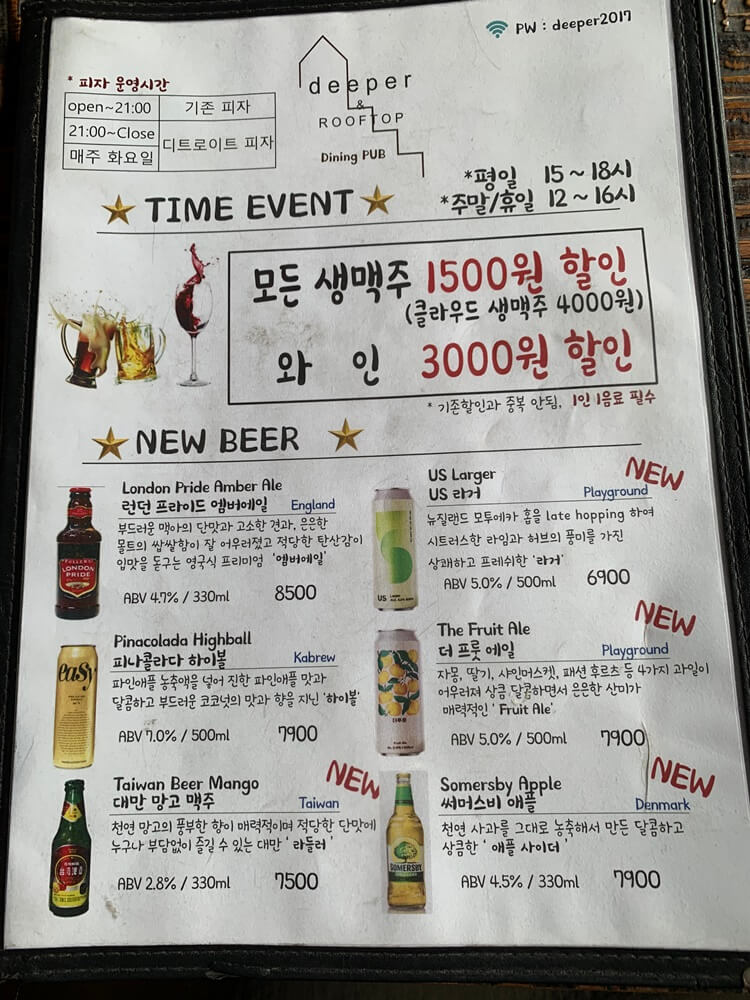 PW : deeper2017
* 피자 운영시간
open~21:00 기존 피자
21:00~Close
매주 화요일
디트로이트 피자
deeper
&
ROOFTOP
Dining PUB
*평일 15 ~ 18시
*주말/휴일 12 ~ 16시
TIME EVENT
모든 생맥주 1500원 할인
(클라우드 생맥주 4000원)
와 인 3000원 할인
* 기존할인과 중복 안됨, 1인 1음료 필수
NEW BEER
London Pride Amber Ale
런던 프라이드 엠버에일 England
부드러운 맥아의 단맛과 고소한 견과, 은은한
몰트의 쌉쌀함이 잘 어우러졌고 적당한 탄산감이
입맛을 돋구는 영국식 프리미엄 '엠버에일'
ABV 4.7% / 330ml 8500
LONDON
PRIDE
NEW
US Larger
US 라거 Playground
뉴질랜드 모투에카 홉을 late hopping 하여
시트러스한 라임과 허브의 풍미를 가진
상쾌하고 프레쉬한 '라거'
ABV 5.0% / 500ml 6900
US
Pinacolada Highball
피나콜라다 하이볼 Kabrew
파인애플 농축액을 넣어 진한 파인애플 맛과
달콤하고 부드러운 코코넛의 맛과 향을 지닌 '하이볼'
ABV 7.0% / 500ml 7900
easy
NEW
The Fruit Ale
더 프룻 에일 Playground
자몽, 딸기, 샤인머스켓, 패션 후르츠 등 4가지 과일이
어우러져 상큼 달콤하면서 은은한 산미가
매력적인 ' Fruit Ale'
ABV 5.0% / 500ml 7900
NEW
Taiwan Beer Mango
대만 망고 맥주 Taiwan
천연 망고의 풍부한 향이 매력적이며 적당한 단맛에
누구나 부담없이 즐길 수 있는 대만 ' 라들러 '
ABV 2.8% / 330ml 7500
NEW
Somersby Apple
써머스비 애플 Denmark
천연 사과를 그대로 농축해서 만든 달콤하고
상큼한 ' 애플 사이더 '
ABV 4.5% / 330ml 7900
SOMERSBY